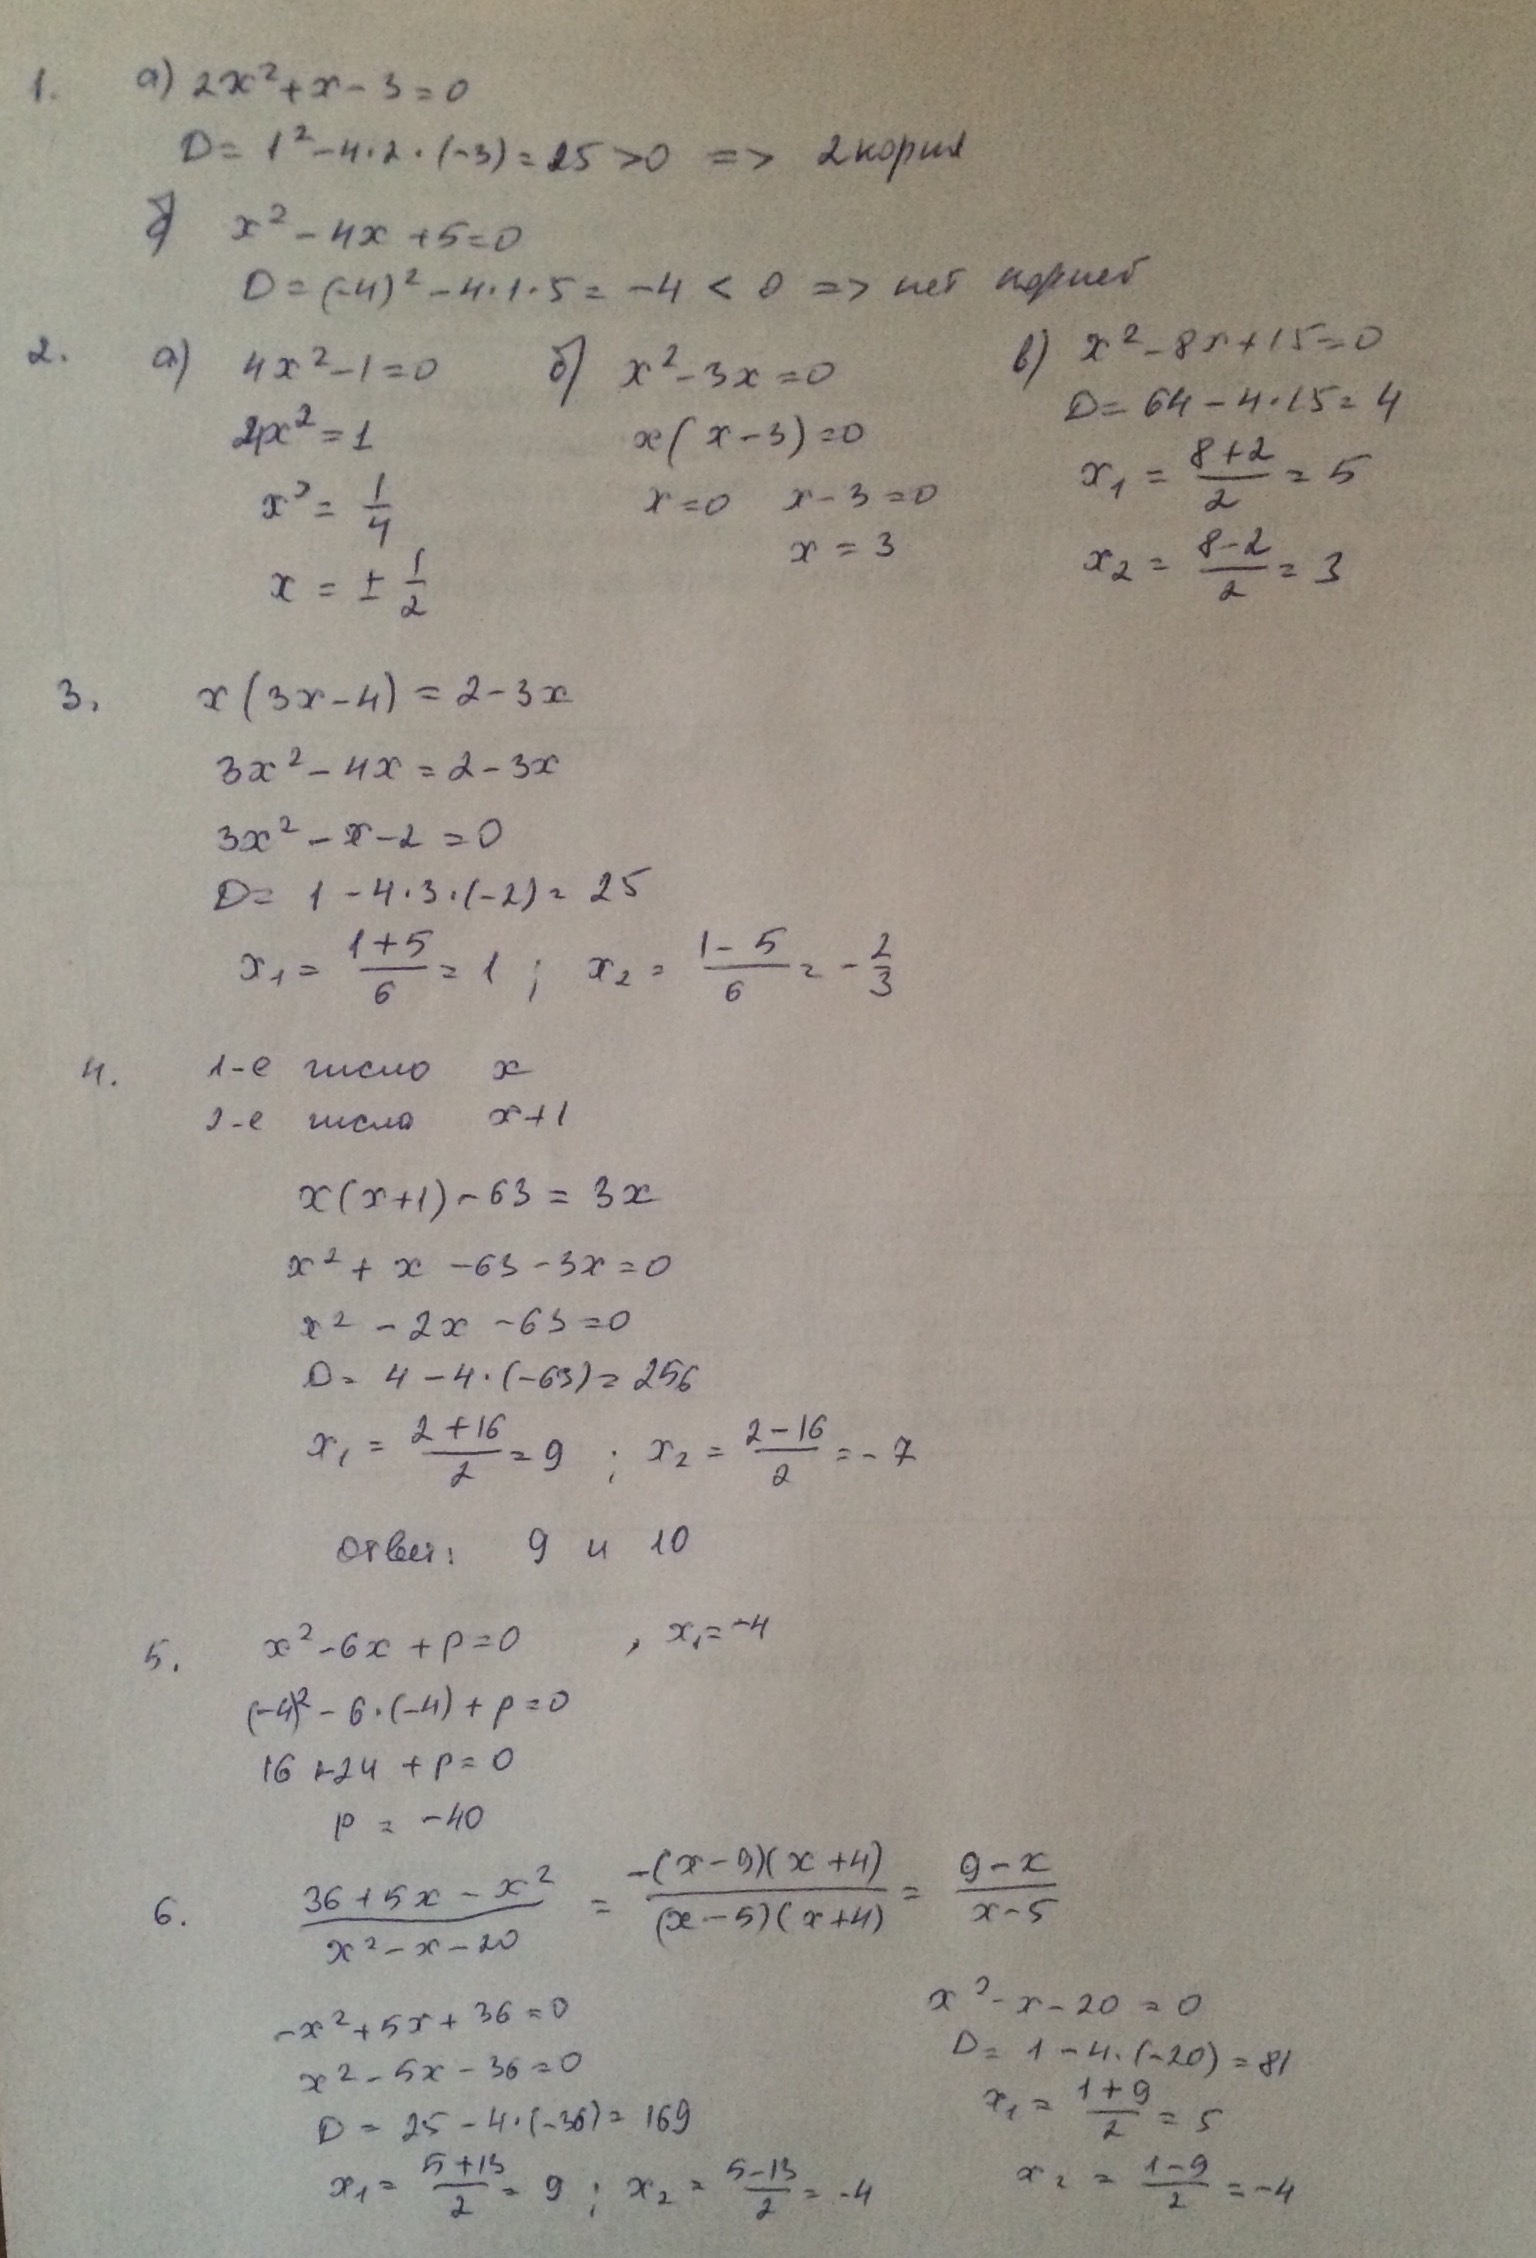 1. а) 2x² + x - 3 = 0
D = 1² - 4·2·(-3) = 25 > 0 => 2 корня
б) x² - 4x + 5 = 0
D = (-4)² - 4·1·5 = -4 < 0 => нет корней
2. а) 4x² - 1 = 0
x² = 1
x² = 1/4
x = ± 1/2
б) x² - 3x = 0
x(x-3) = 0
x = 0 x - 3 = 0
x = 3
в) x² - 8x + 15 = 0
D = 64 - 4·15 = 4
x₁ = (8+2)/2 = 5
x₂ = (8-2)/2 = 3
3. x(3x-4) = 2 - 3x
3x² - 4x = 2 - 3x
3x² - x - 2 = 0
D = 1 - 4·3·(-2) = 25
x₁ = (1+5)/6 = 1 ; x₂ = (1-5)/6 = -2/3
4. 1-е число x
2-е число x+1
x(x+1) - 63 = 3x
x² + x - 63 - 3x = 0
x² - 2x - 63 = 0
D = 4 - 4·(-63) = 256
x₁ = (2+16)/2 = 9 ; x₂ = (2-16)/2 = -7
Ответ: 9 и 10
5. x² - 6x + p = 0 , x₁ = -4
(-4)² - 6·(-4) + p = 0
16 + 24 + p = 0
p = -40
6. (36 + 5x - x²)/(x² - x - 20) = (-(x-9)(x+4))/((x-5)(x+4)) = (9-x)/(x-5)
-x² + 5x + 36 = 0
x² - 5x - 36 = 0
D = 25 - 4·(-36) = 169
x₁ = (5+13)/2 = 9 ; x₂ = (5-13)/2 = -4
x² - x - 20 = 0
D = 1 - 4·(-20) = 81
x₁ = (1+9)/2 = 5
x₂ = (1-9)/2 = -4